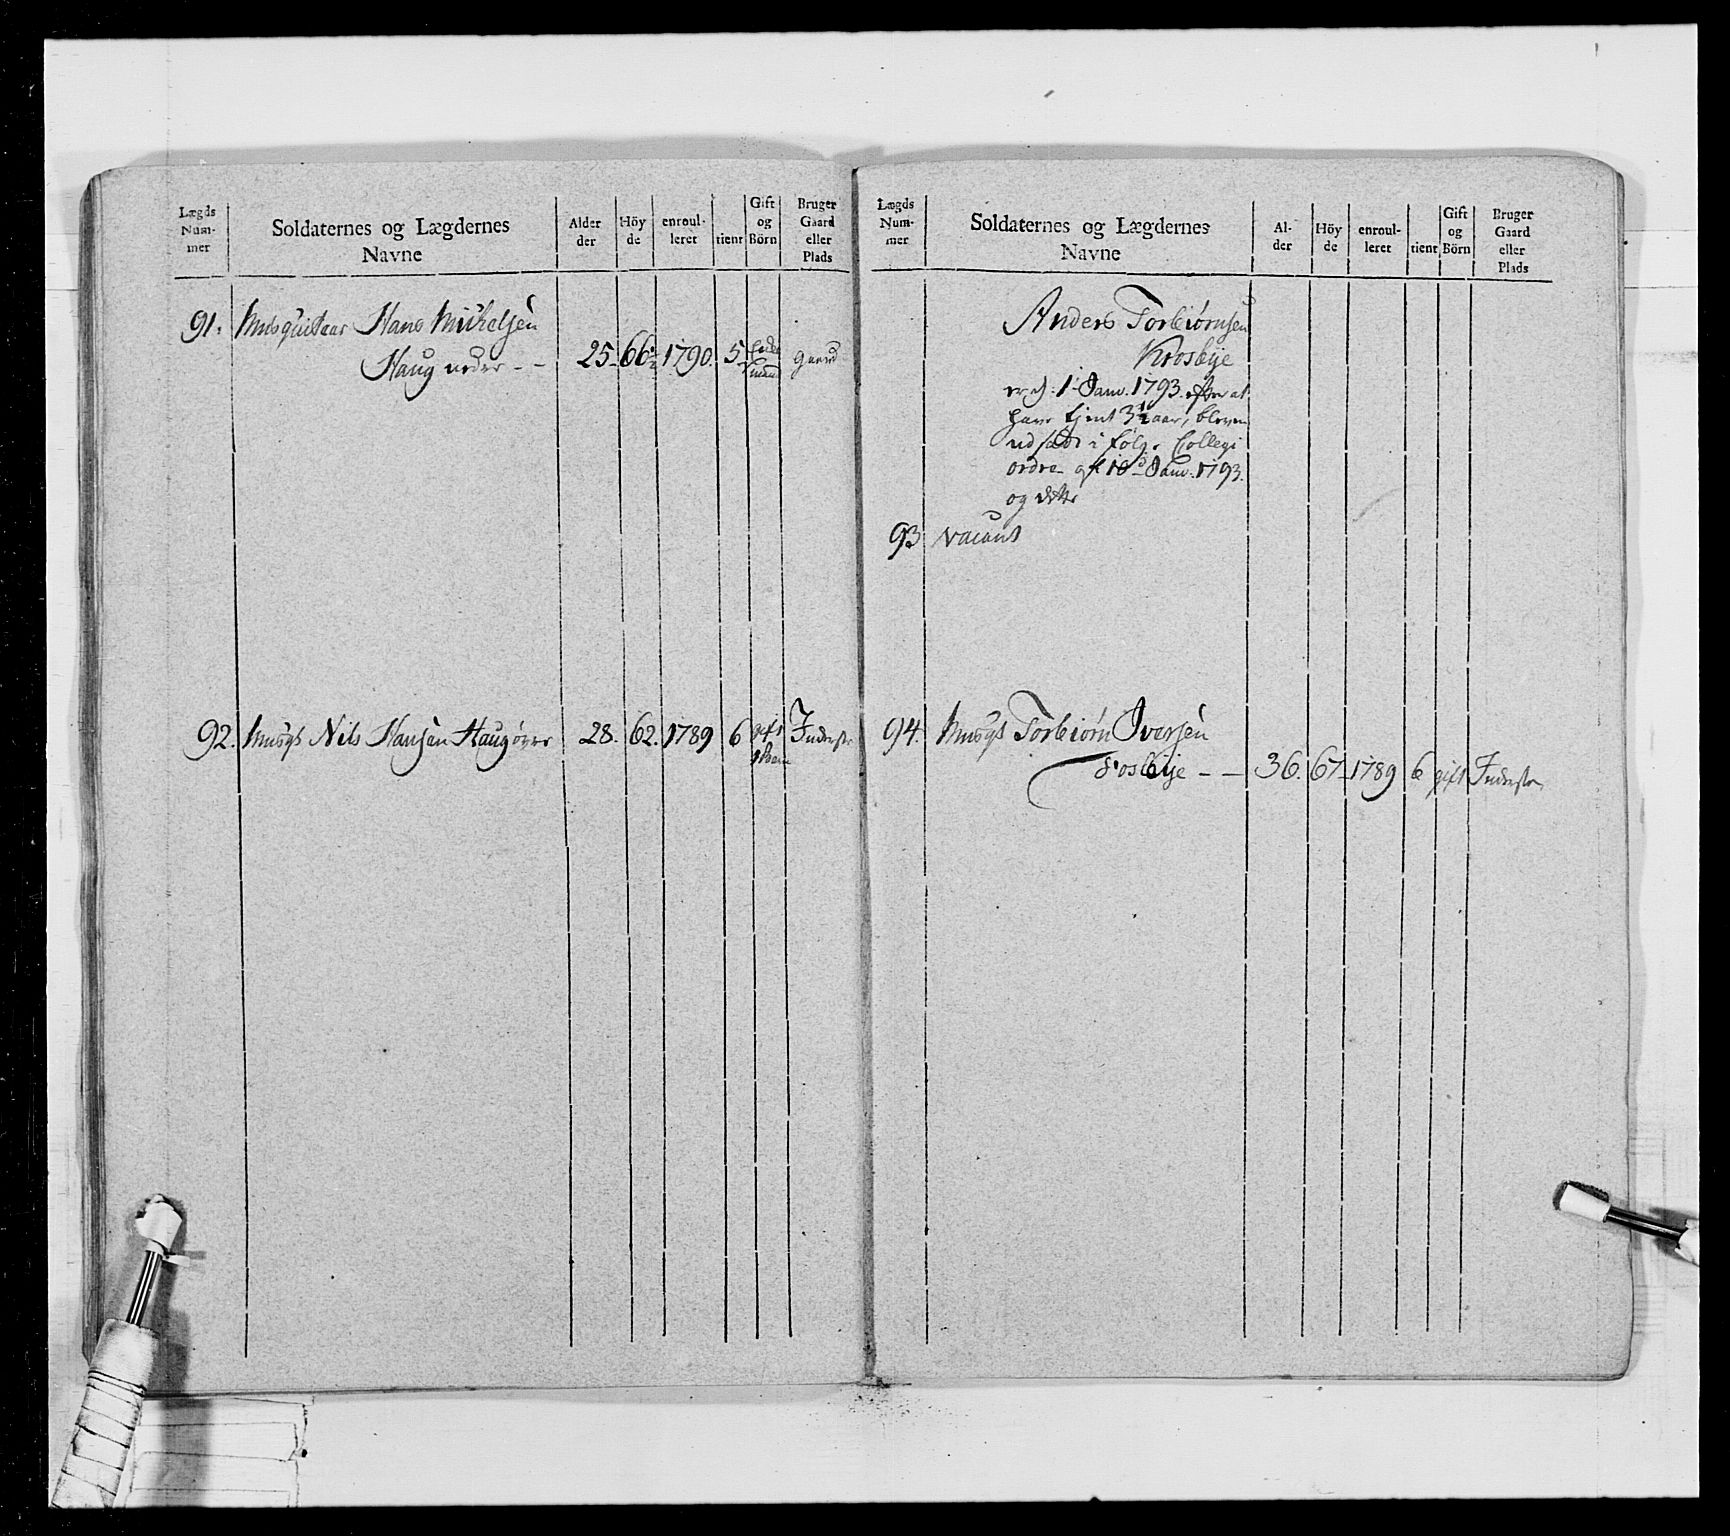 Lægds
Num-
mer
Soldaternes og Lægdernes
Navne
Alder
der
Höy
de
enroul-
leret
tient
Gift
og
Börn
Bruger
Gaard
eller
Plads
91. Musquitaar Hans Michelsen
Haug nedre - - 25. 66½ 1790. 5 gaard
92. Musqt Nils Hansen Haug øvre 28. 62. 1789 6 gift Inderste
1 Barn
Lægds
Num-
mer
Soldaternes og Lægdernes
Navne
Al-
der
Höy
de
enroul-
leret
tient
Gift
og
Börn
Bruger
Gaard
eller
Plads
Anders Torbiørnsen
Krosbye
er d: 1 Janv. 1793. efter at
have tjent 3½ aar, bleven
udsadt i følge Collegi
ordre af 18 Janv. 1793.
og dette
93 vacant
94. Musqt Torbiørn Iversen
Fosbye - - 36. 67 - 1789 6 gift Inderste